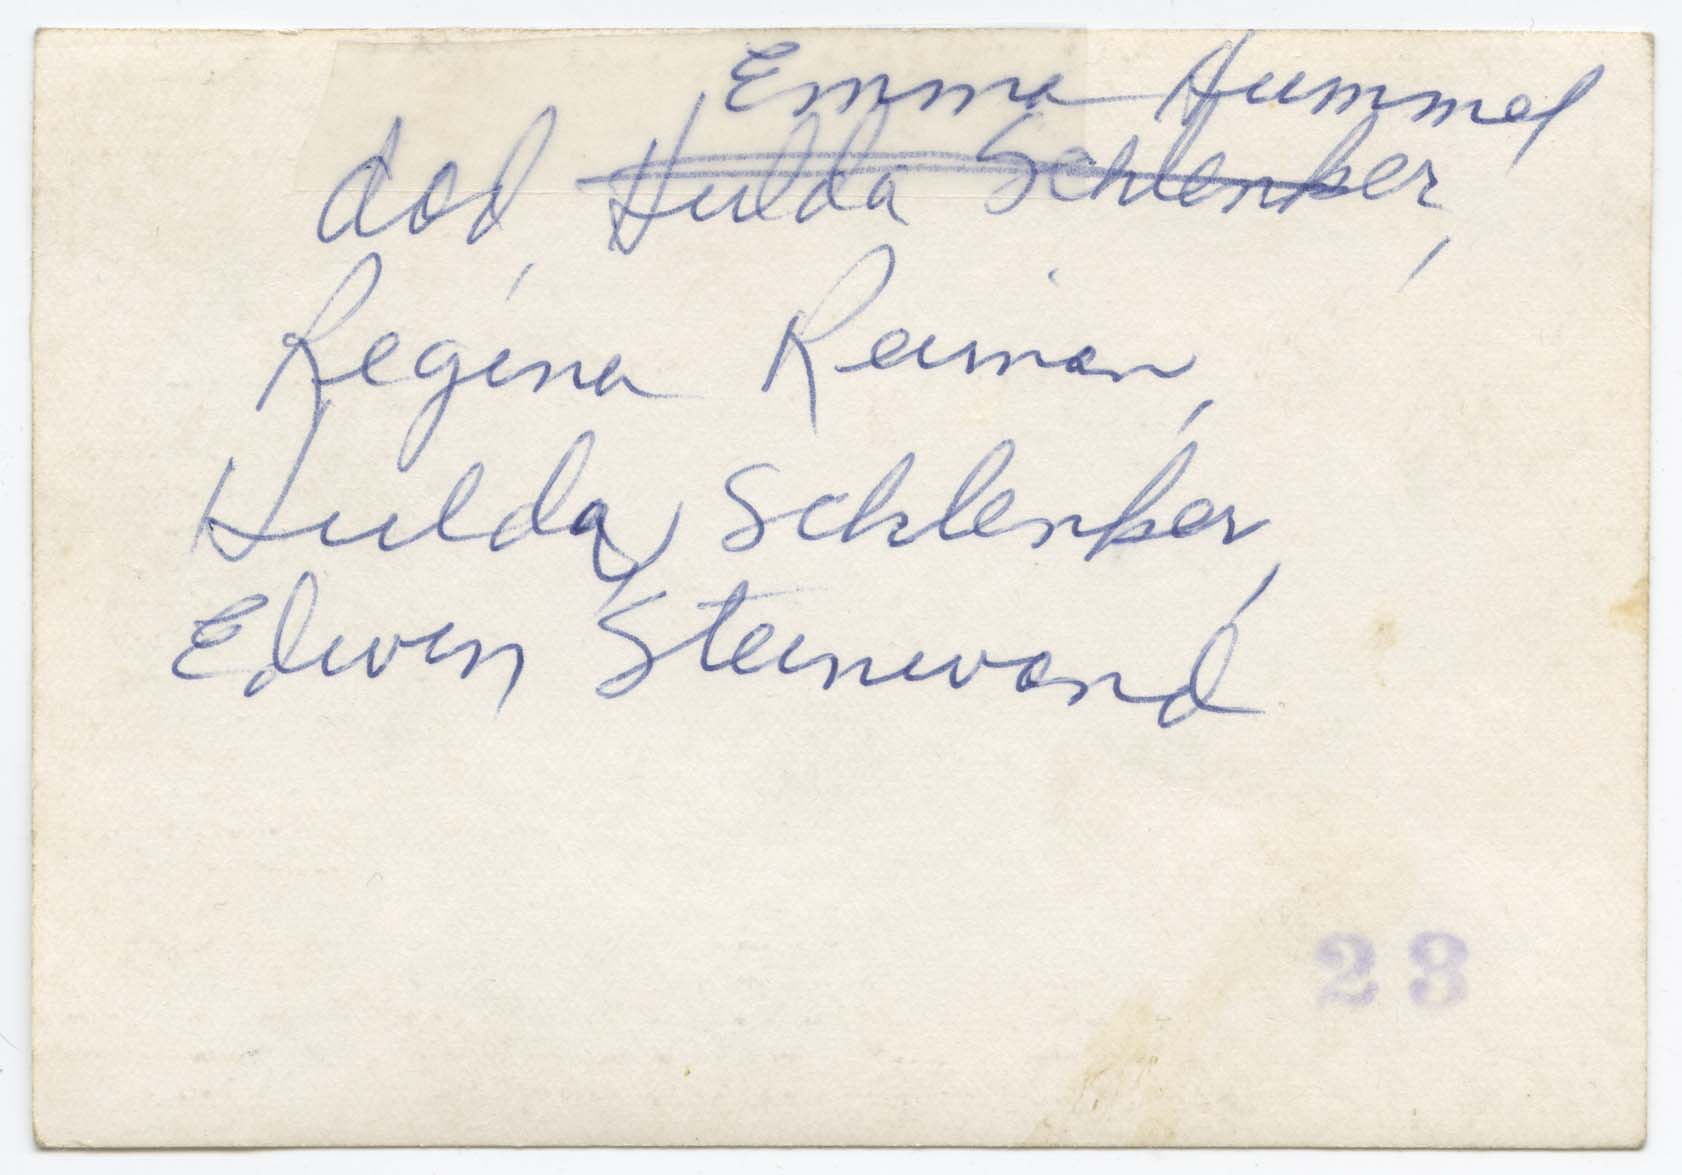 Emma Hummel
dad, Hulda Schlenker,
Regina Reiman,
Hulda Schlenker,
Edwin Steinwand
23